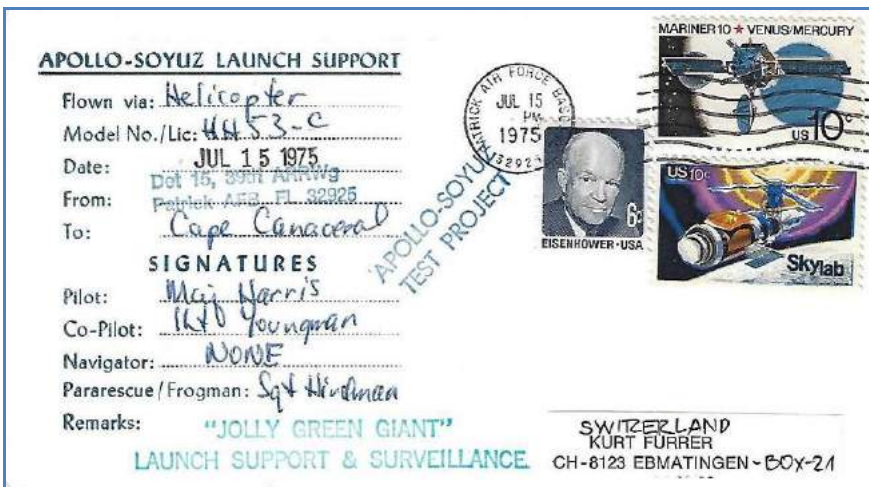 APOLLO-SOYUZ LAUNCH SUPPORT
Flown via: Helicopter
Model No./Lic: HH53-C
Date: JUL 15 1975
From: Det 15, 3901 ARRWg
Patrick AFB, FL 32925
To: Cape Canaveral
SIGNATURES
Pilot: Maj Harris
Co-Pilot: Youngman
Navigator: NONE
Pararescue/Frogman: Sgt Hindman
Remarks: "JOLLY GREEN GIANT"
LAUNCH SUPPORT & SURVEILLANCE
APOLLO-SOYUZ
TEST PROJECT
PATRICK AIR FORCE BASE
JUL 15
PM
1975
32925
6c
EISENHOWER·USA
MARINER 10 ★ VENUS/MERCURY
US 10c
US 10c
Skylab
SWITZERLAND
KURT FÜRRER
CH-8123 EBMATINGEN-BOX-21